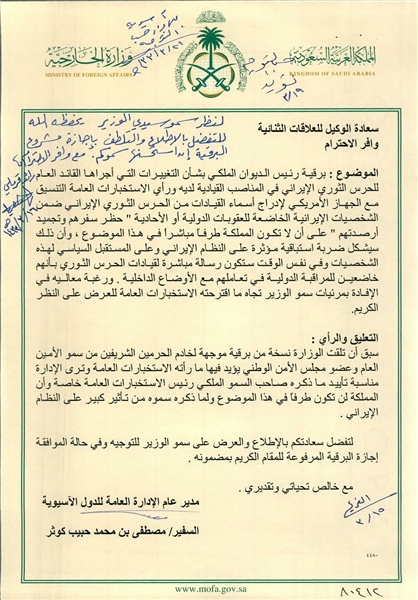 المملكة العربية السعودية
وزارة الخارجية
MINISTRY OF FOREIGN AFFAIRS
KINGDOM OF SAUDI ARABIA
لنظر سمو سيدي الوزير يحفظه الله
للتفضل بالاطلاع والتلطف بإجازة مشروع
البرقية إذا استحسن سموكم
سعادة الوكيل للعلاقات الثنائية
وافر الاحترام
الموضوع : برقية رئيس الديوان الملكي بشأن التغييرات التي أجراها القائد العام
للحرس الثوري الإيراني في المناصب القيادية لديه ورأي الاستخبارات العامة التنسيق
مع الجهاز الأمريكي لإدراج أسماء القيادات من الحرس الثوري الإيراني ضمن
الشخصيات الإيرانية الخاضعة للعقوبات الدولية أو الأحادية " حظر سفرهم وتجميد
أرصدتهم " على أن لا تكون المملكة طرفاً مباشراً في هذا الموضوع ، وأن ذلك
سيشكل ضربة استباقية مؤثرة على النظام الإيراني وعلى المستقبل السياسي لهذه
الشخصيات وفي نفس الوقت ستكون رسالة مباشرة لقيادات الحرس الثوري بأنهم
خاضعين للمراقبة الدولية في تعاملهم مع الأوضاع الداخلية . ورغبة معاليه في
الإفادة بمرئيات سمو الوزير تجاه ما اقترحته الاستخبارات العامة للعرض على النظر
الكريم.
التعليق والرأي :
سبق أن تلقت الوزارة نسخة من برقية موجهة لخادم الحرمين الشريفين من سمو الأمين
العام وعضو مجلس الأمن الوطني يؤيد فيها ما رأته الاستخبارات العامة وترى الإدارة
مناسبة تأييد ما ذكره صاحب السمو الملكي رئيس الاستخبارات العامة خاصة وأن
المملكة لن تكون طرفاً في هذا الموضوع ولما ذكره سموه من تأثير كبير على النظام
الإيراني .
لتفضل سعادتكم بالإطلاع والعرض على سمو الوزير للتوجيه وفي حالة الموافقة
إجازة البرقية المرفوعة للمقام الكريم بمضمونه .
مع خالص تحياتي وتقديري .
مدير عام الإدارة العامة للدول الآسيوية
السفير/ مصطفى بن محمد حبيب كوثر
٣/١٥
٤٤٨٠
www.mofa.gov.sa
٨٠٤١٢